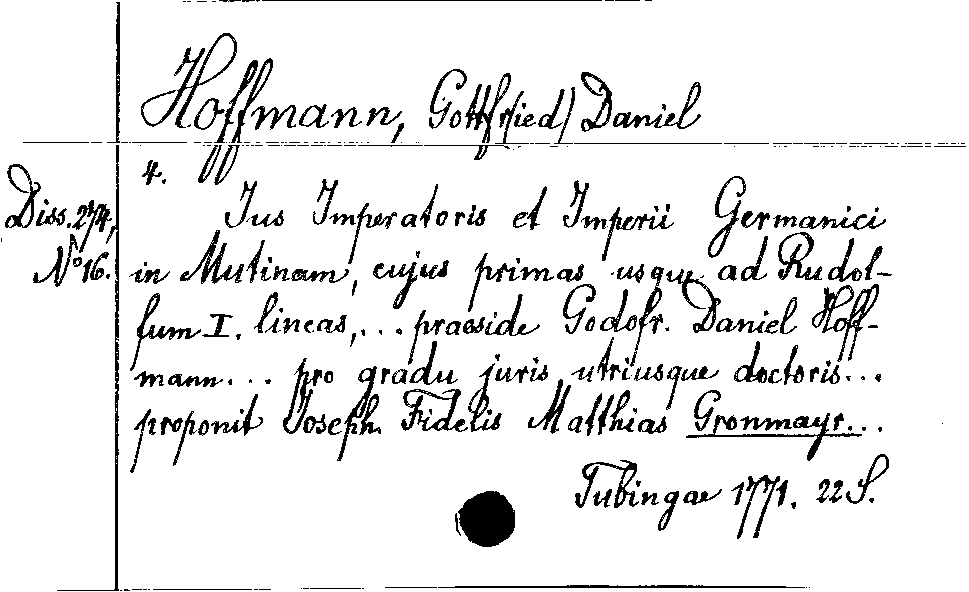 Hoffmann, Gottfr(ied) Daniel
4.
Diss. 274,
N° 16.
Jus Imperatoris et Imperii Germanici
in Mutinam, cujus primas usque ad Rudol-
fum I. lineas, ... praeside Godofr. Daniel Hoff-
mann ... pro gradu juris utriusque doctoris ...
proponit Joseph. Fidelis Matthias Gronmayr ...
Tubingae 1771. 22 S.